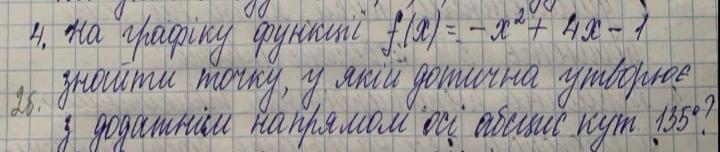 4. На графіку функції f(x) = -x² + 4x - 1
знайти точку, у якій дотична утворює
2б. з додатнім напрямом осі абсцис кут 135°?